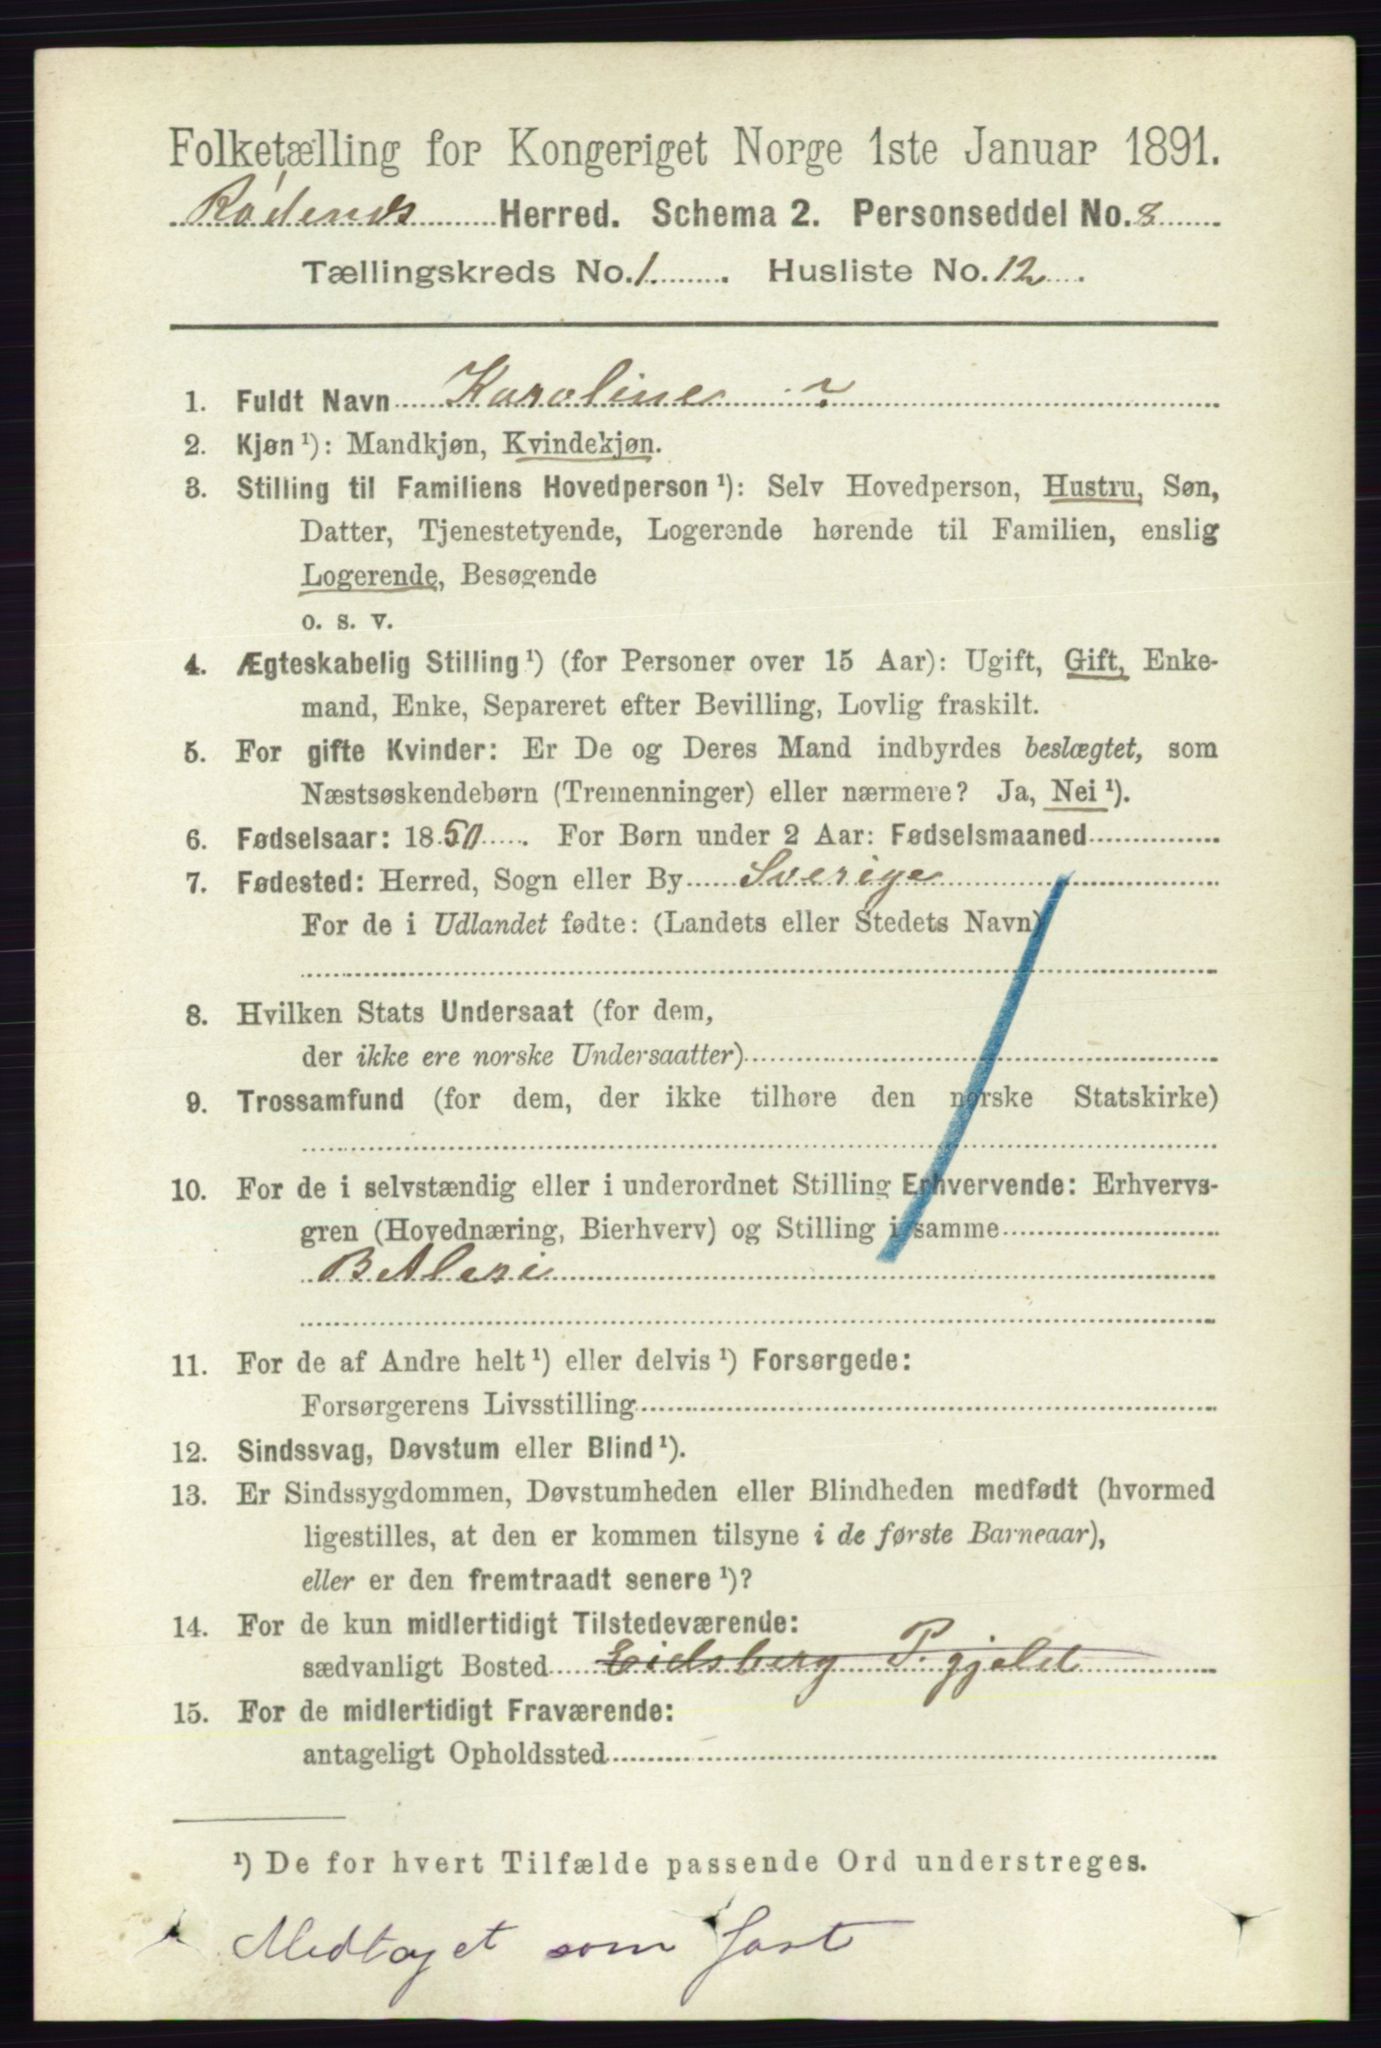 Folketælling for Kongeriget Norge 1ste Januar 1891.
Rødenes Herred. Schema 2. Personseddel No. 8
Tællingskreds No. 1. Husliste No. 12.
1. Fuldt Navn Karoline ?
2. Kjøn ¹): Mandkjøn, Kvindekjøn.
3. Stilling til Familiens Hovedperson ¹): Selv Hovedperson, Hustru, Søn,
Datter, Tjenestetyende, Logerende hørende til Familien, enslig
Logerende, Besøgende
o. s. v.
4. Ægteskabelig Stilling ¹) (for Personer over 15 Aar): Ugift, Gift, Enke-
mand, Enke, Separeret efter Bevilling, Lovlig fraskilt.
5. For gifte Kvinder: Er De og Deres Mand indbyrdes beslægtet, som
Næstsøskendebørn (Tremenninger) eller nærmere? Ja, Nei ¹).
6. Fødselsaar: 1850. For Børn under 2 Aar: Fødselsmaaned
7. Fødested: Herred, Sogn eller By Sverige
For de i Udlandet fødte: (Landets eller Stedets Navn)
8. Hvilken Stats Undersaat (for dem,
der ikke ere norske Undersaatter)
9. Trossamfund (for dem, der ikke tilhøre den norske Statskirke)
10. For de i selvstændig eller i underordnet Stilling Erhvervende: Erhvervs-
gren (Hovednæring, Bierhverv) og Stilling i samme
Betleri
11. For de af Andre helt ¹) eller delvis ¹) Forsørgede:
Forsørgerens Livsstilling
12. Sindssvag, Døvstum eller Blind ¹).
13. Er Sindssygdommen, Døvstumheden eller Blindheden medfødt (hvormed
ligestilles, at den er kommen tilsyne i de første Barneaar),
eller er den fremtraadt senere ¹)?
14. For de kun midlertidigt Tilstedeværende:
sædvanligt Bosted Eidsberg P. gjeld
15. For de midlertidigt Fraværende:
antageligt Opholdssted
¹) De for hvert Tilfælde passende Ord understreges.
Medtaget som fast